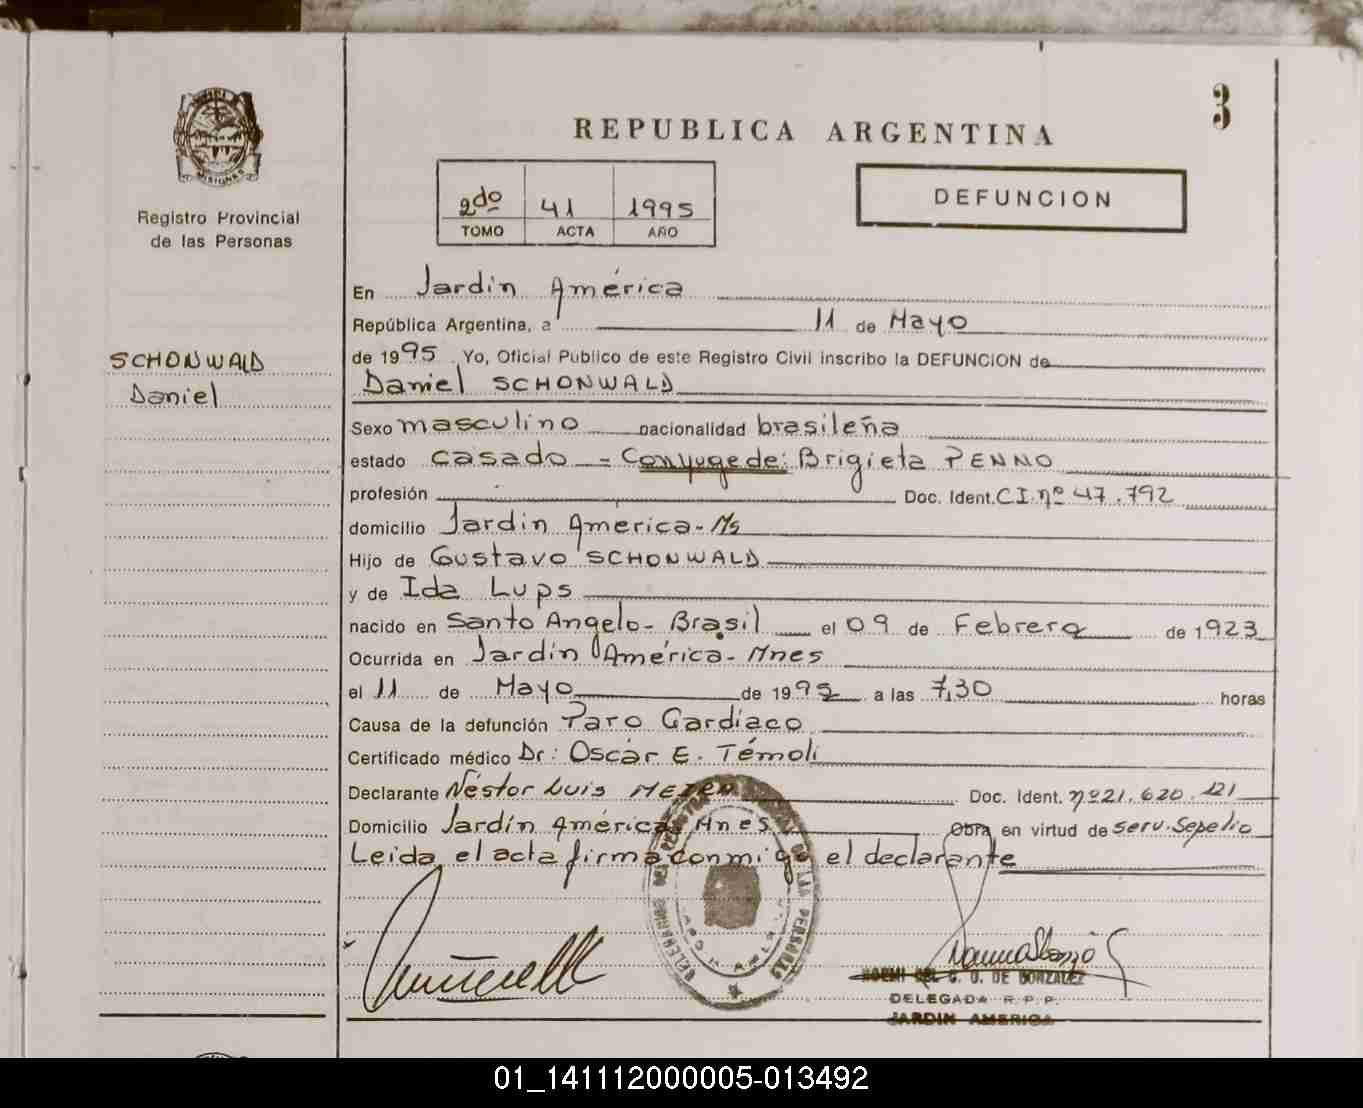 3
REPUBLICA ARGENTINA
MISIONES
Registro Provincial
de las Personas
2do 41 1995
TOMO ACTA AÑO
DEFUNCION
SCHONWALD
Daniel
En Jardin América
República Argentina, a 11 de Mayo
de 1995 Yo, Oficial Público de este Registro Civil inscribo la DEFUNCION de
Daniel SCHONWALD
Sexo masculino nacionalidad brasileña
estado casado = Conyuge de: Brigieta PENNO
profesión Doc. Ident. C I. nº 47.792
domicilio Jardin América - Ms
Hijo de Gustavo SCHONWALD
y de Ida Lups
nacido en Santo Angelo - Brasil el 09 de Febrero de 1923
Ocurrida en Jardin América - Mnes
el 11 de Mayo de 1995 a las 7,30 horas
Causa de la defunción Paro Cardíaco
Certificado médico Dr: Oscar E. Témoli
Declarante Néstor Luis Doc. Ident. nº 21.620.121
Domicilio Jardín América Mnes Obra en virtud de serv. Sepelio
Leida el acta firma conmigo el declarante
DE LAS PERSONAS
NOEMI DEL C. O. DE GONZALEZ
DELEGADA R.P.P.
JARDIN AMERICA
01_141112000005-013492